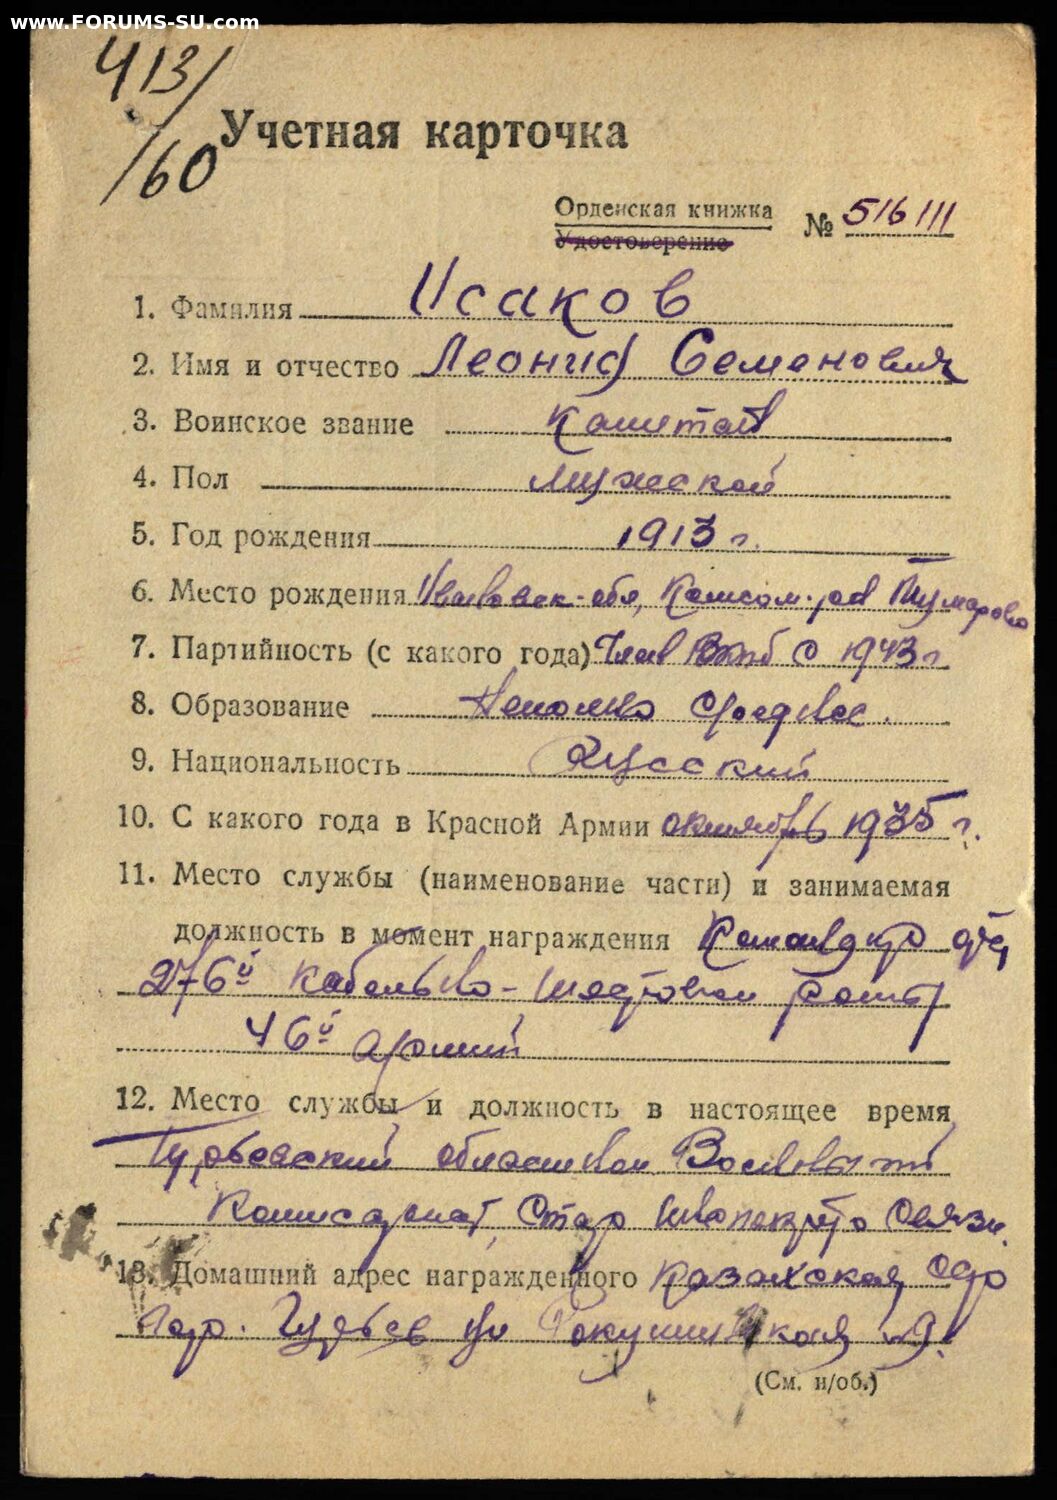 www.FORUMS-SU.com
413/
/60
Учетная карточка
Орденская книжка
Удостоверение
№ 516111
1. Фамилия Исаков
2. Имя и отчество Леонид Семенович
3. Воинское звание Капитан
4. Пол мужской
5. Год рождения 1913 г.
6. Место рождения Ивановск. обл, Комсом. рай
7. Партийность (с какого года) Член ВКПб с 1943 г
8. Образование Неполно среднее.
9. Национальность Русский
10. С какого года в Красной Армии октябрь 1935 г.
11. Место службы (наименование части) и занимаемая
должность в момент награждения Командир отд
276й кабельно-шестовой роты
46й армии
12. Место службы и должность в настоящее время
Гурьевский областной Военный
Комисариат, Стар связи.
13. Домашний адрес награжденного Казахская ССР
гор. Гурьев ул №9.
(См. н/об.)